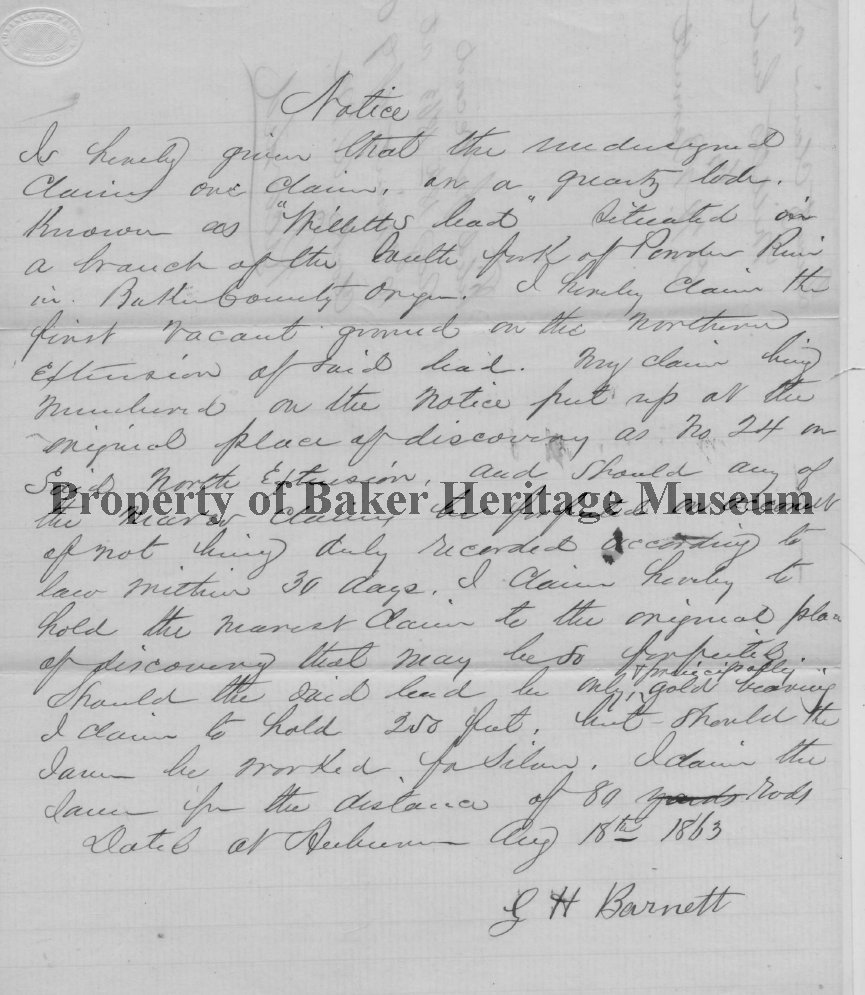 Notice
Is hereby given that the undersigned
Claims one Claim, on a quartz lode.
Known as "Willetts lead" situated in
a branch of the South fork of Powder River
in Baker County Oregn. I hereby Claim the
first vacant ground on the Northern
Extension of said lead. My claim being
numbered on the notice put up at the
original place of discovery as No 24 on
Said North Extension, and should any of
Property of Baker Heritage Museum
the nearer claims be forfeited on account
of not being duly recorded according to
law within 30 days. I Claim hereby to
hold the nearest Claim to the original place
of discovery that may be so forfeited.
Should the said lead be only, + principally gold bearing
I claim to hold 250 feet, but should the
same be worked for Silver. I claim the
same for the distance of 80 yards rods
Dated at Auburn Aug 18th 1863
G H Barnett